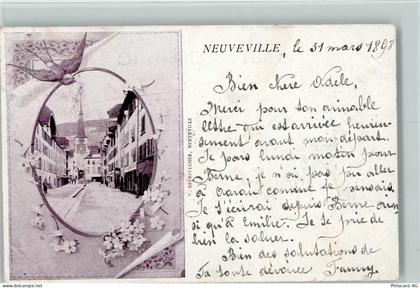 NEUVEVILLE, le 31 mars 1898
Bien chère Adèle,
Merci pour ton aimable
lettre qui est arrivée heureu-
sement avant mon départ.
Je pars lundi matin pour
Berne, je n'ai pas pu aller
à comme je pensais.
Je t'écrirai depuis Berne ain-
si qu'à Emilie. Je te prie de
bien la saluer.
Bien des salutations de
Ta toute dévouée Fanny.
NEUVEVILLE